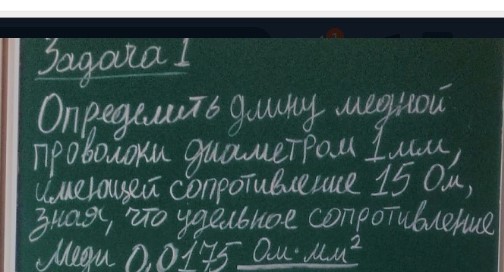 Задача 1
Определить длину медной
проволоки диаметром 1мм,
имеющей сопротивление 15 Ом,
зная, что удельное сопротивление
меди 0,0175 Ом·мм²